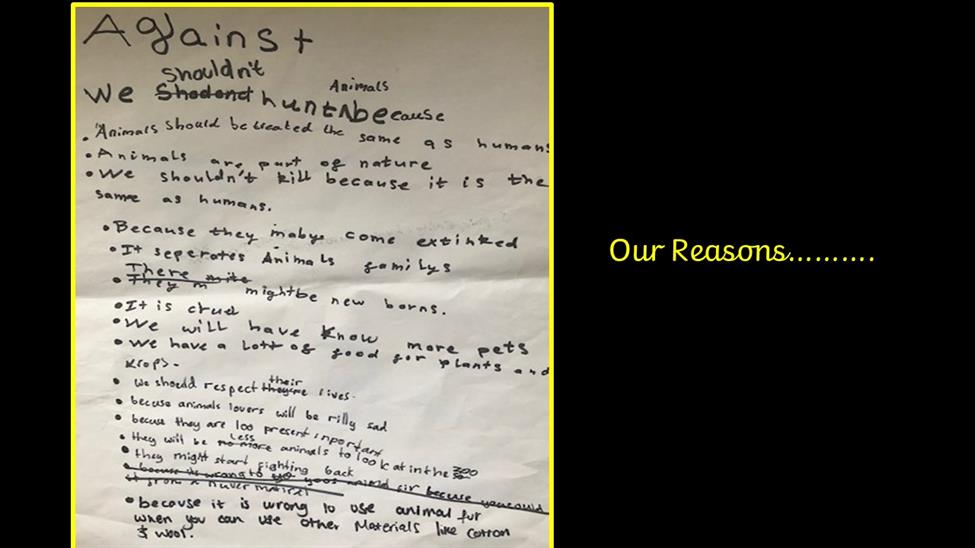 Against
Shouldn't Animals
We Shodond hunt because
• Animals should be treated the same as humans
• Animals are part of nature
• We shouldn't kill because it is the
same as humans.
• Because they mabye come extinked
• It seperates Animals familys
There mite
• They m might be new borns.
• It is cruel
• We will have know more pets
• We have a lott of good for plants and
krops.
their
• we should respect lives.
• becuse animals lovers will be rilly sad
• becuse they are 100 present inportant
less
• they will be no more animals to look at in the zoo
• they might start fighting back
• because it is wrong to use animal fur
when you can use other Materials like cotton
& wool.
Our Reasons..........